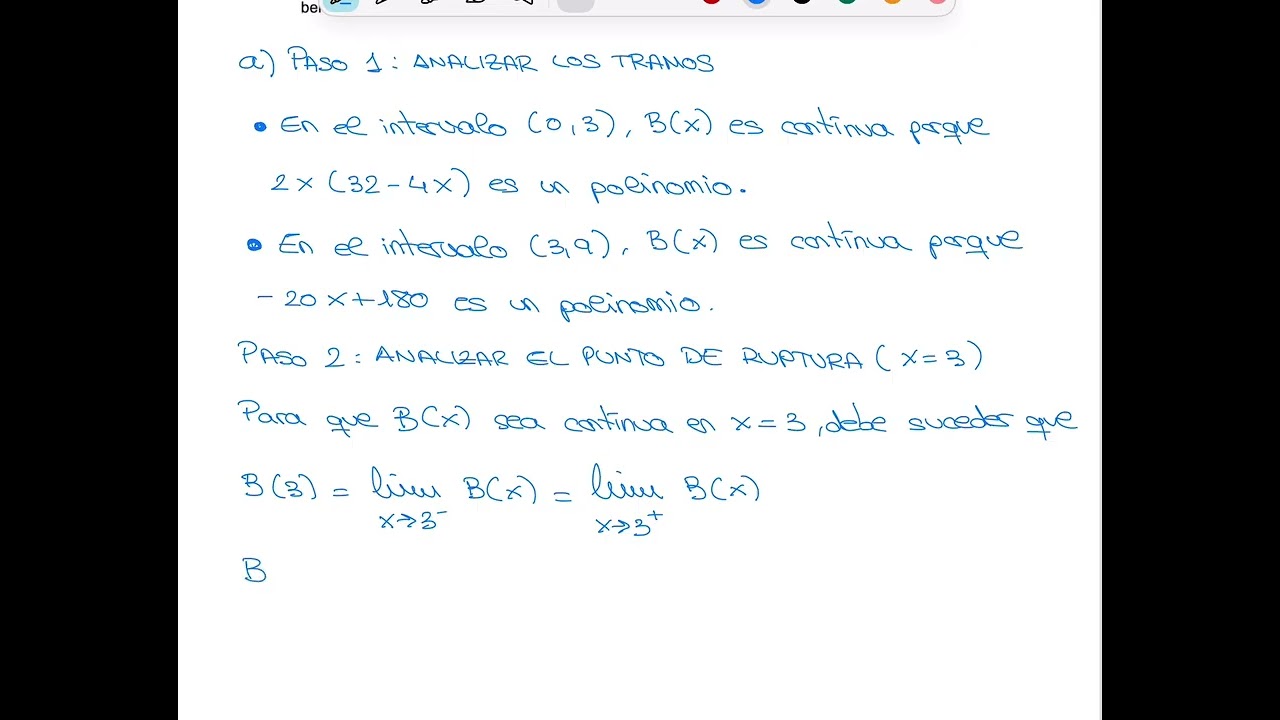 a) PASO 1: ANALIZAR LOS TRAMOS
• En el intervalo (0,3), B(x) es contínua porque
2x (32-4x) es un polinomio.
• En el intervalo (3,9), B(x) es contínua porque
-20x+180 es un polinomio.
PASO 2: ANALIZAR EL PUNTO DE RUPTURA (x=3)
Para que B(x) sea contínua en x=3, debe suceder que
B(3) = lim B(x) = lim B(x)
x→3⁻ x→3⁺
B